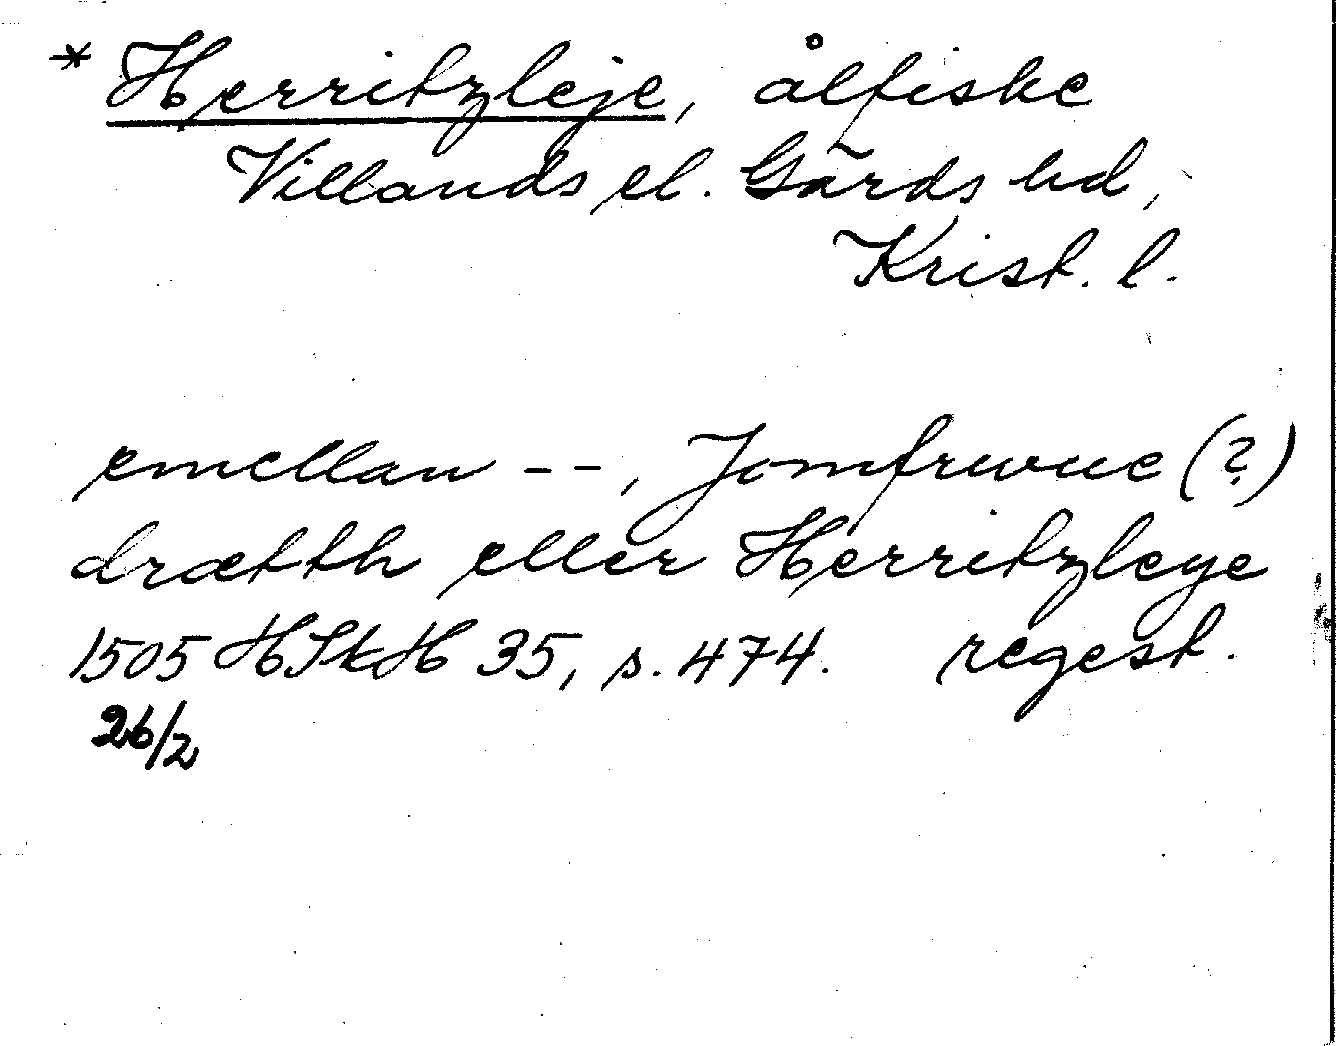 * Herritzleje, ålfiske
Villands el. Gärds hd,
Krist. l.
emellan - - , Jomfruuue (?)
drætth eller Herritzleye
1505 HSkH 35, s. 474. regest.
26/2